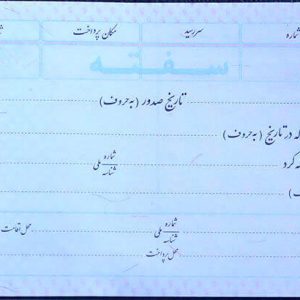 شماره سررسید مکان پرداخت شماره
سفته
تاریخ صدور (به حروف)
له در تاریخ (به حروف)
ه کرد شماره/شناسه ملی
ف)
شماره/شناسه ملی محل اقامت
محل پرداخت